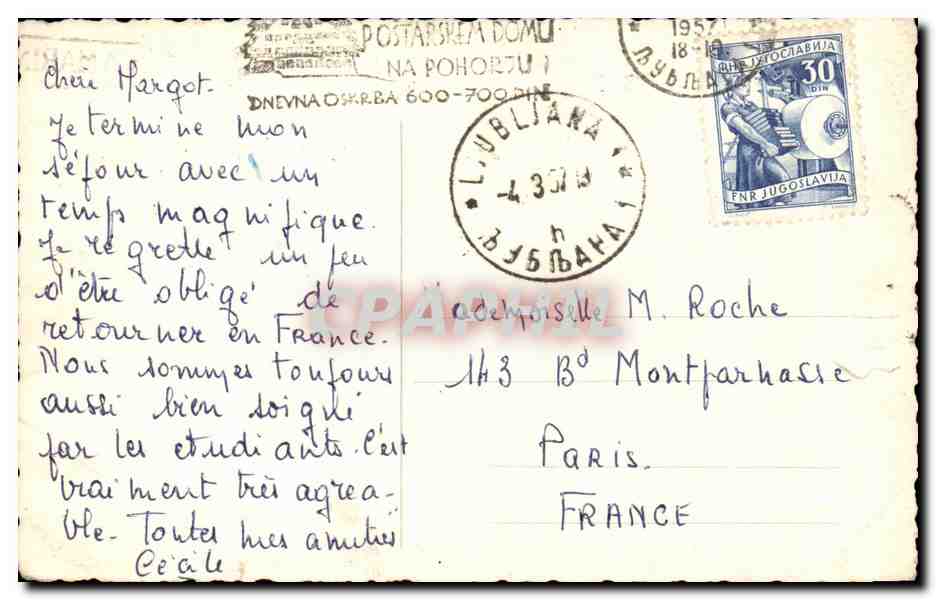 POSTARSKEM DOMU
NA POHORJU!
DNEVNA OSKRBA 600-700 DIN
1957
18-19
ЉУБЉАНА
ФНР ЈУГОСЛАВИЈА
30
DIN
FNR JUGOSLAVIJA
LJUBLJANA 1
-4.3.57 19
h
ЉУБЉАНА 1
Chere Margot.
Je termine mon
séjour avec un
temps magnifique.
Je regrette un peu
d'être obligé de
retourner en France.
Nous sommes toujours
aussi bien soigné
par les etudiants. C'est
vraiment très agréa-
ble. Toutes mes amitiés
Cécile
Mademoiselle M. Roche
143 Bd Montparnasse
PARIS.
FRANCE
CPAPHIL